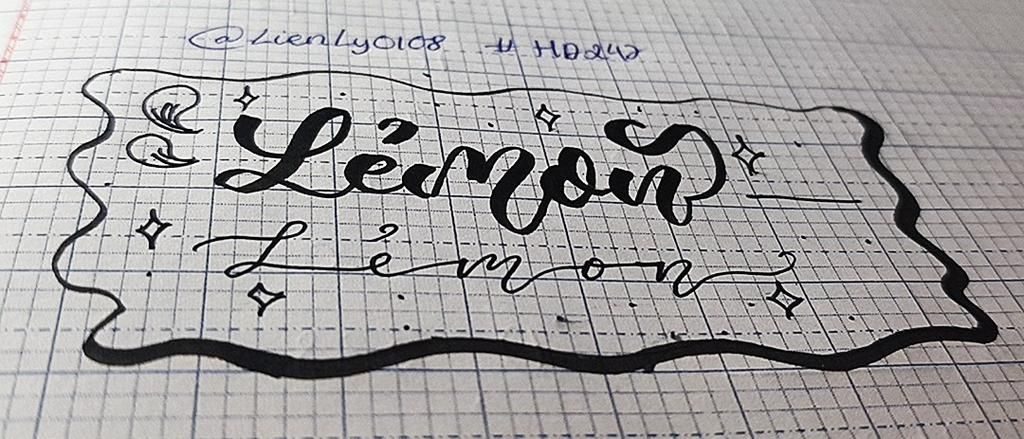 @Lienly0108 # HD24h
Lémon
Lémon